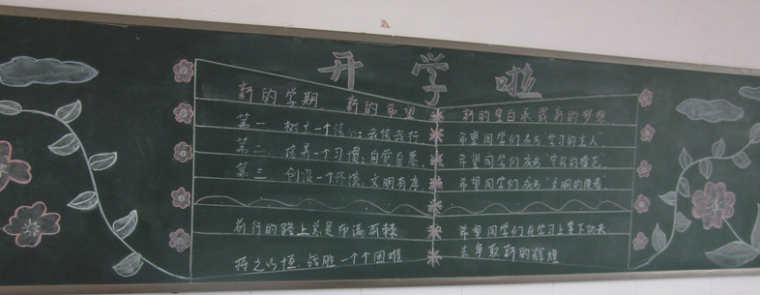 开学啦
新的学期 新的希望
第一 树立一个信心:我能我行
第二 培养一个习惯:自觉自
第三 创设一个环境:文明有序
前行的路上总是布满荆棘
持之以恒,战胜一个个困难
新的 我新的梦想
希望同学们成为"学习的主人"
希望同学们成为"守纪的模范"
希望同学们成为"文明的使者"
希望同学们在学习上拿下功夫
去争取新的辉煌